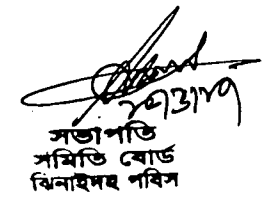 সভাপতি
সমিতি বোর্ড
ঝিনাইদহ পবিস